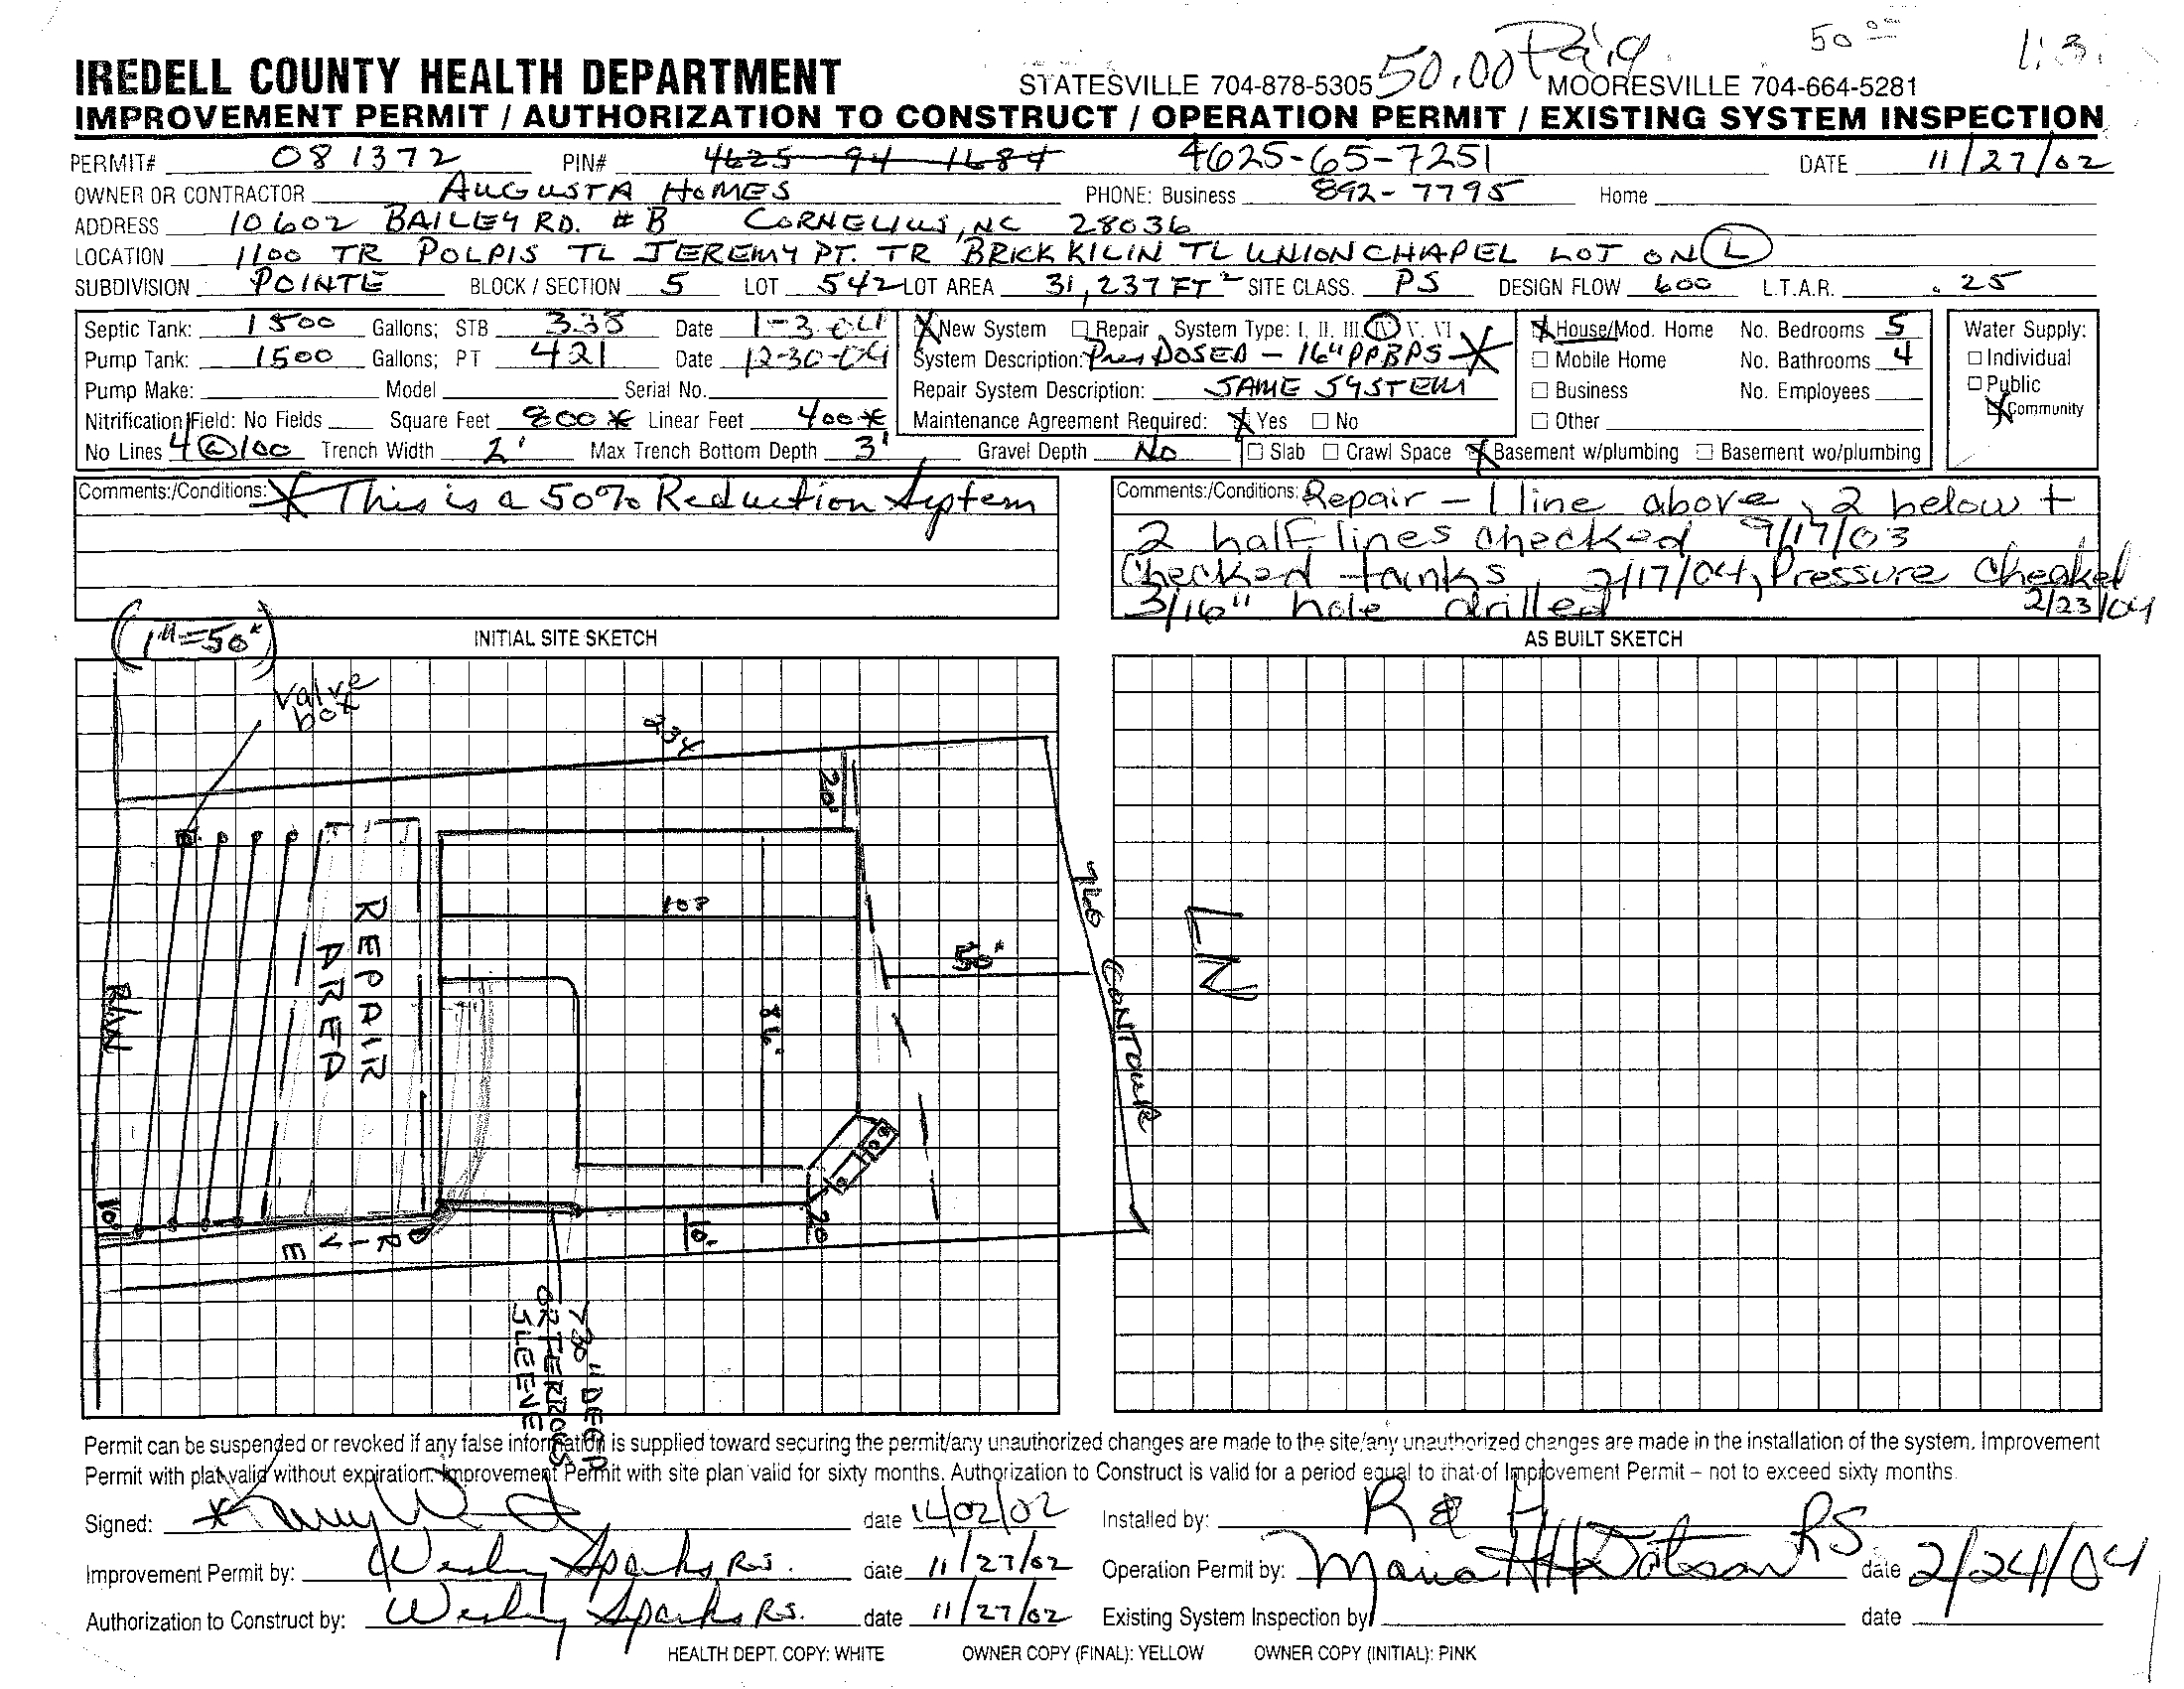 50.00 Paid 50 00
IREDELL COUNTY HEALTH DEPARTMENT STATESVILLE 704-878-5305 MOORESVILLE 704-664-5281
IMPROVEMENT PERMIT / AUTHORIZATION TO CONSTRUCT / OPERATION PERMIT / EXISTING SYSTEM INSPECTION
PERMIT# 081372 PIN# 4625 94 1684 4625-65-7251 DATE 11/27/02
OWNER OR CONTRACTOR AUGUSTA HOMES PHONE: Business 892-7795 Home
ADDRESS 10602 BAILEY RD. #B CORNELIUS, NC 28036
LOCATION 1100 TR POLPIS TL JEREMY PT. TR BRICK KILIN TL UNION CHAPEL LOT ON L
SUBDIVISION POINTE BLOCK / SECTION 5 LOT 542 LOT AREA 31,237 FT² SITE CLASS. PS DESIGN FLOW 600 L.T.A.R. .25
Septic Tank: 1500 Gallons; STB 335 Date 1-3-04 X New System ☐ Repair System Type: I, II, III, IV, V, VI X House/Mod. Home No. Bedrooms 5 Water Supply:
Pump Tank: 1500 Gallons; PT 421 Date 12-30-04 System Description: Pres DOSED - 16" PPBPS * ☐ Mobile Home No. Bathrooms 4 ☐ Individual
Pump Make: Model Serial No. Repair System Description: SAME SYSTEM ☐ Business No. Employees ☐ Public
Nitrification Field: No Fields Square Feet 800 * Linear Feet 400 * Maintenance Agreement Required: X Yes ☐ No ☐ Other X Community
No Lines 4 @ 100 Trench Width 2' Max Trench Bottom Depth 3' Gravel Depth No ☐ Slab ☐ Crawl Space X Basement w/plumbing ☐ Basement wo/plumbing
Comments:/Conditions: * This is a 50% Reduction System
Comments:/Conditions: Repair - 1 line above, 2 below +
2 half lines checked 9/17/03
Checked tanks, 2/17/04, Pressure Checked
3/16" hole drilled 2/23/04
(1"=50')
INITIAL SITE SKETCH
AS BUILT SKETCH
valve
box
234
20'
103
REPAIR
AREA
R/W
50'
86'
760 CONTOUR
N
10'
DRIVE
10'
20
730" DEEP
OR FERROUS
SLEEVE
Permit can be suspended or revoked if any false information is supplied toward securing the permit/any unauthorized changes are made to the site/any unauthorized changes are made in the installation of the system. Improvement
Permit with plat valid without expiration. Improvement Permit with site plan valid for sixty months. Authorization to Construct is valid for a period equal to that of Improvement Permit – not to exceed sixty months.
Signed: * date 12/02/02 Installed by: R & H
Improvement Permit by: Wesley Sparks R.S. date 11/27/02 Operation Permit by: Maria H Dotson RS date 2/24/04
Authorization to Construct by: Wesley Sparks R.S. date 11/27/02 Existing System Inspection by date
HEALTH DEPT. COPY: WHITE OWNER COPY (FINAL): YELLOW OWNER COPY (INITIAL): PINK